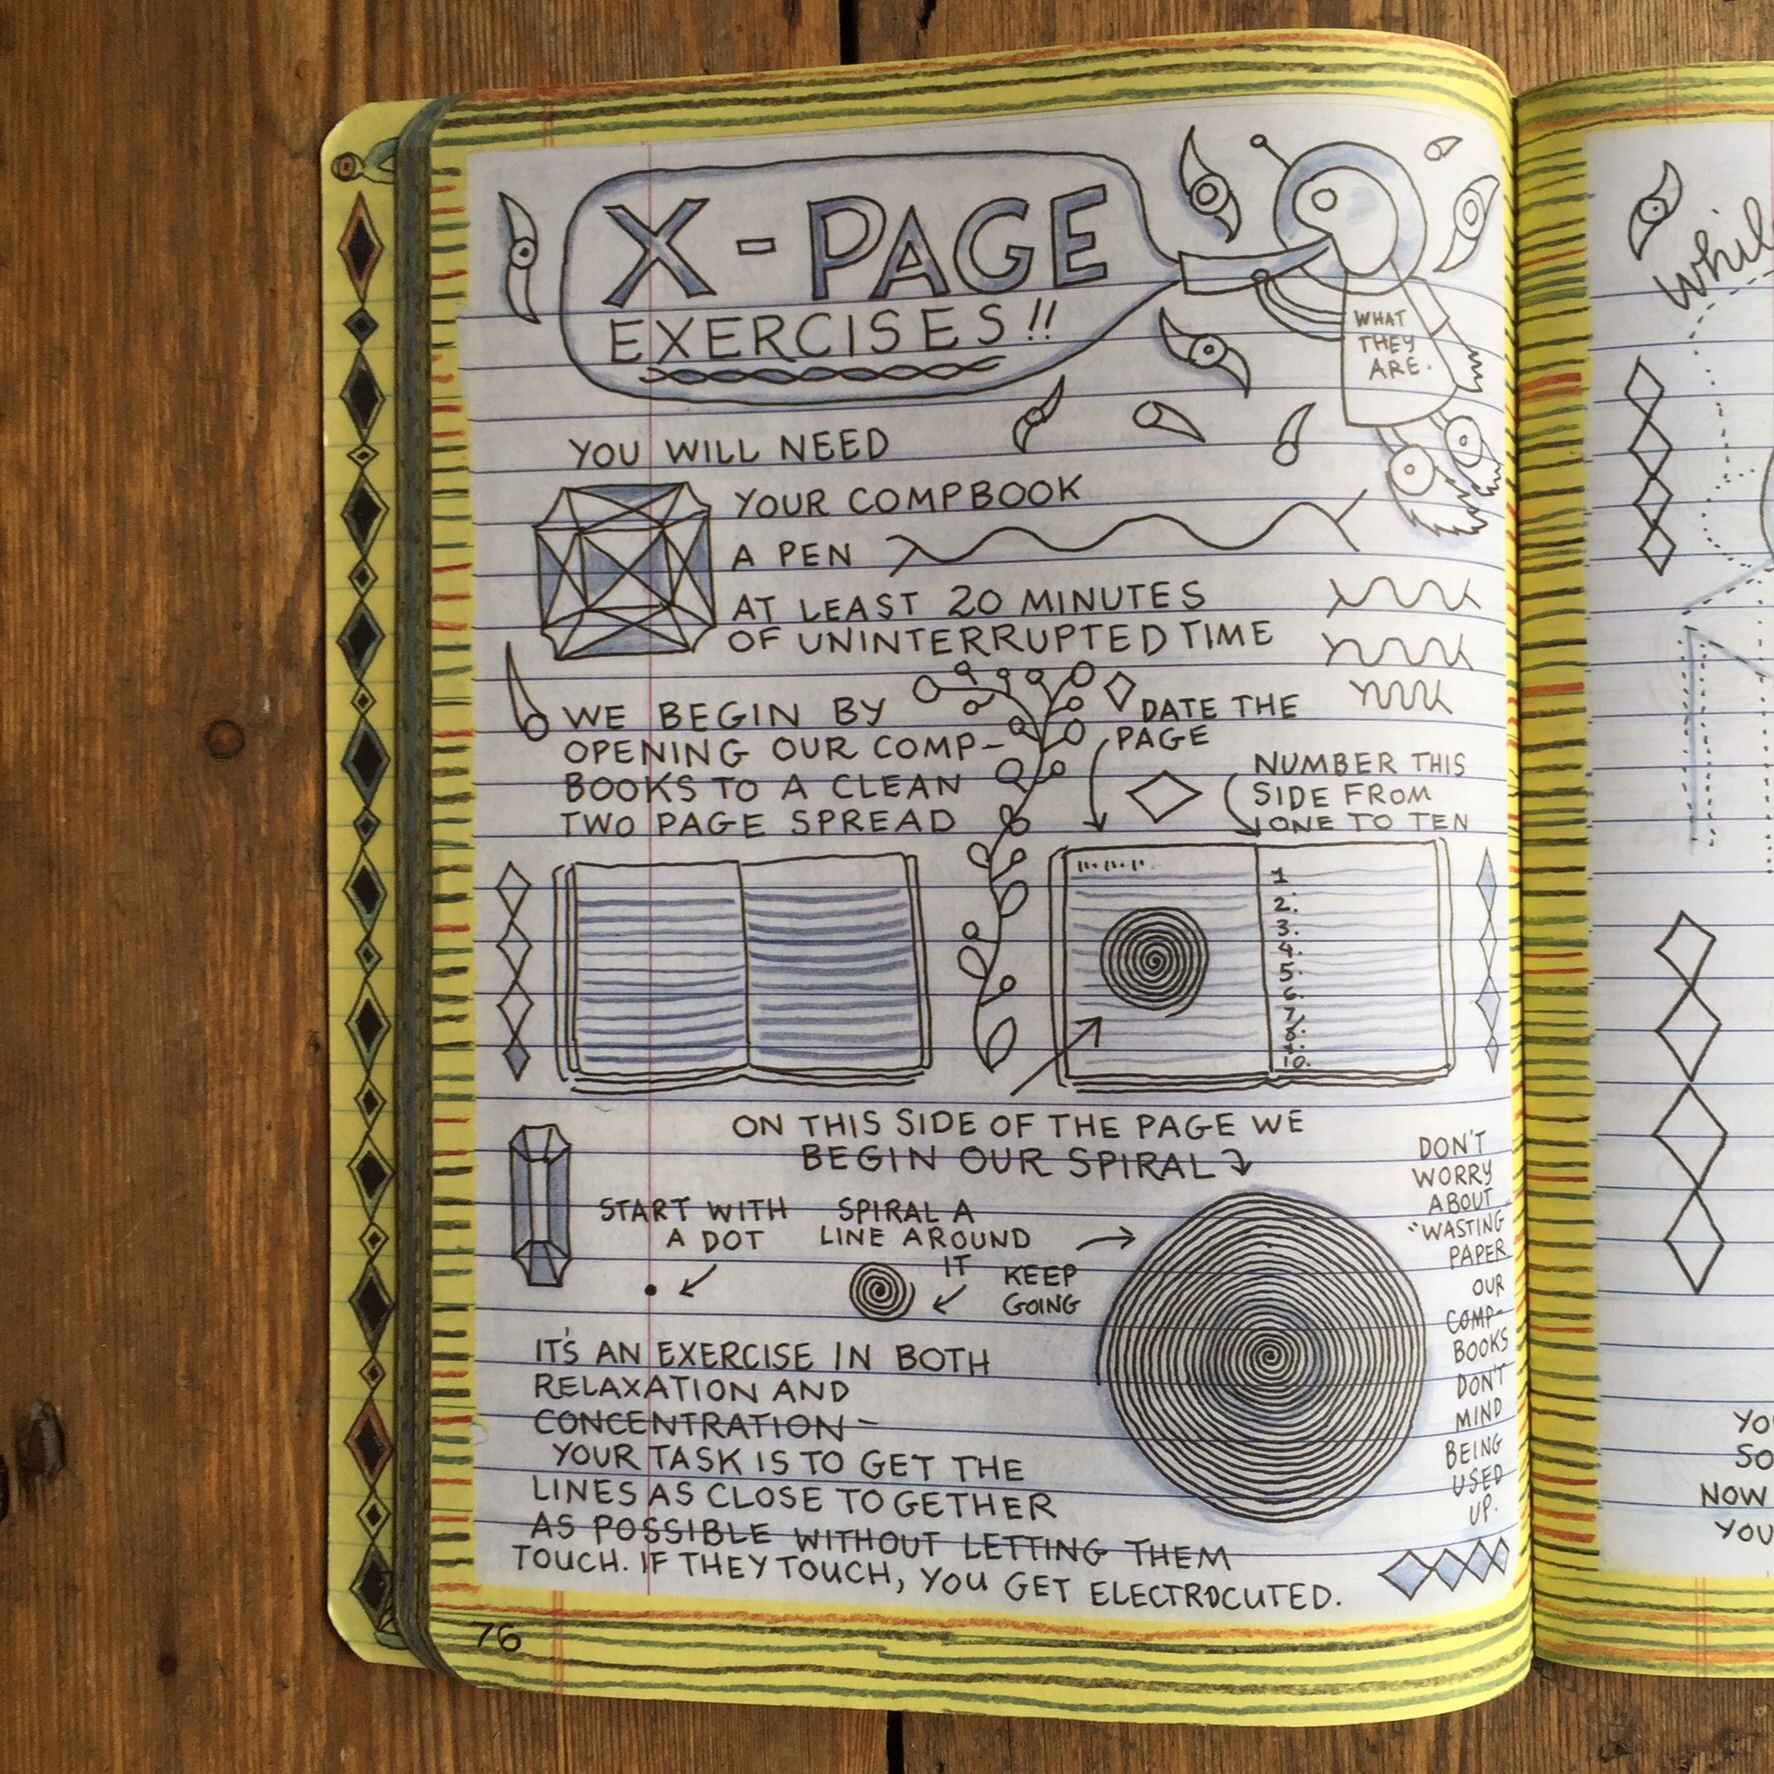 X-PAGE
EXERCISES!!
WHAT
THEY
ARE.
YOU WILL NEED
YOUR COMPBOOK
A PEN
AT LEAST 20 MINUTES
OF UNINTERRUPTED TIME
WE BEGIN BY
OPENING OUR COMP-
BOOKS TO A CLEAN
TWO PAGE SPREAD
DATE THE
PAGE
NUMBER THIS
SIDE FROM
ONE TO TEN
1
2.
3.
4.
5.
6.
7.
8.
9.
10.
ON THIS SIDE OF THE PAGE WE
BEGIN OUR SPIRAL
START WITH
A DOT
SPIRAL A
LINE AROUND
IT
KEEP
GOING
DON'T
WORRY
ABOUT
"WASTING
PAPER
OUR
COMP-
BOOKS
DON'T
MIND
BEING
USED
UP.
IT'S AN EXERCISE IN BOTH
RELAXATION AND
CONCENTRATION-
YOUR TASK IS TO GET THE
LINES AS CLOSE TOGETHER
AS POSSIBLE WITHOUT LETTING THEM
TOUCH. IF THEY TOUCH, YOU GET ELECTROCUTED.
76
NOW